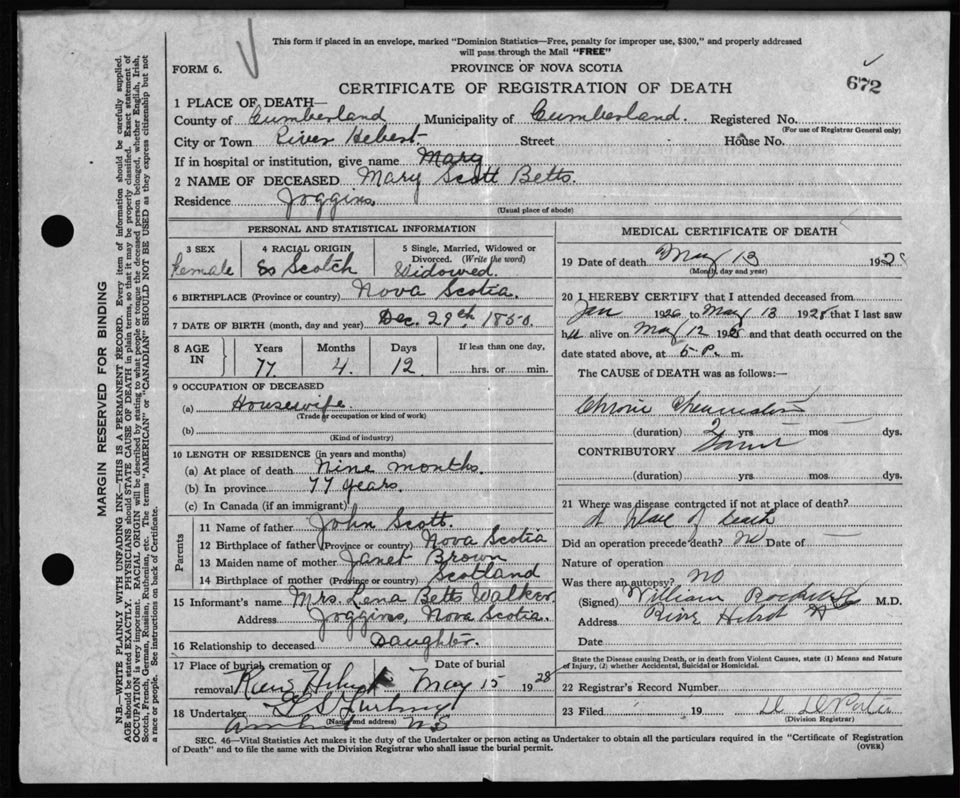 This form if placed in an envelope, marked "Dominion Statistics—Free, penalty for improper use, $300," and properly addressed
will pass through the Mail "FREE"
FORM 6.
PROVINCE OF NOVA SCOTIA
672
CERTIFICATE OF REGISTRATION OF DEATH
1 PLACE OF DEATH—
County of Cumberland Municipality of Cumberland. Registered No.
(For use of Registrar General only)
City or Town River Hebert Street House No.
If in hospital or institution, give name Mary
2 NAME OF DECEASED Mary Scott Betts.
Residence Joggins,
(Usual place of abode)
PERSONAL AND STATISTICAL INFORMATION
3 SEX 4 RACIAL ORIGIN 5 Single, Married, Widowed or Divorced. (Write the word)
Female Scotch Widowed.
6 BIRTHPLACE (Province or country) Nova Scotia.
7 DATE OF BIRTH (month, day and year) Dec. 29th, 1850.
8 AGE IN Years Months Days If less than one day,
77. 4. 12 hrs. or min.
9 OCCUPATION OF DECEASED
(a) Housewife.
(Trade or occupation or kind of work)
(b)
(Kind of industry)
10 LENGTH OF RESIDENCE (in years and months)
(a) At place of death Nine months.
(b) In province 77 years.
(c) In Canada (if an immigrant)
Parents
11 Name of father John Scott.
12 Birthplace of father (Province or country) Nova Scotia
13 Maiden name of mother Janet Brown
14 Birthplace of mother (Province or country) Scotland
15 Informant's name Mrs. Lena Betts Walker
Address Joggins, Nova Scotia.
16 Relationship to deceased Daughter.
17 Place of burial, cremation or removal River Hebert Date of burial May 15 1928
18 Undertaker
(Name and address) N.S
MEDICAL CERTIFICATE OF DEATH
19 Date of death May 13 1928
(Month, day and year)
20 I HEREBY CERTIFY that I attended deceased from
Jan 1926 to May 13 1928 that I last saw
alive on May 12 1928 and that death occurred on the
date stated above, at 5 P. m.
The CAUSE of DEATH was as follows:—
Chronic Rheumatism
(duration) 2 yrs mos dys.
CONTRIBUTORY
(duration) yrs. mos. dys.
21 Where was disease contracted if not at place of death?
At place of Death
Did an operation precede death? No Date of
Nature of operation
Was there an autopsy? No
(Signed) William M.D.
Address River Hebert
Date
State the Disease causing Death, or in death from Violent Causes, state (1) Means and Nature
of Injury, (2) whether Accidental, Suicidal or Homicidal.
22 Registrar's Record Number
23 Filed 19
(Division Registrar)
SEC. 46—Vital Statistics Act makes it the duty of the Undertaker or person acting as Undertaker to obtain all the particulars required in the "Certificate of Registration
of Death" and to file the same with the Division Registrar who shall issue the burial permit.
(OVER)
MARGIN RESERVED FOR BINDING
N.B.—WRITE PLAINLY WITH UNFADING INK—THIS IS A PERMANENT RECORD. Every item of information should be carefully supplied.
AGE should be stated EXACTLY. PHYSICIANS should STATE CAUSE OF DEATH in plain terms, so that it may be properly classified. Exact statement of
OCCUPATION is very important. RACIAL ORIGIN will be described by stating to what people or tongue the deceased person belonged, whether English, Irish,
Scotch, French, German, Russian, Ruthenian, etc. The terms "AMERICAN" or "CANADIAN" SHOULD NOT BE USED as they express citizenship but not
a race or people. See instructions on back of Certificate.